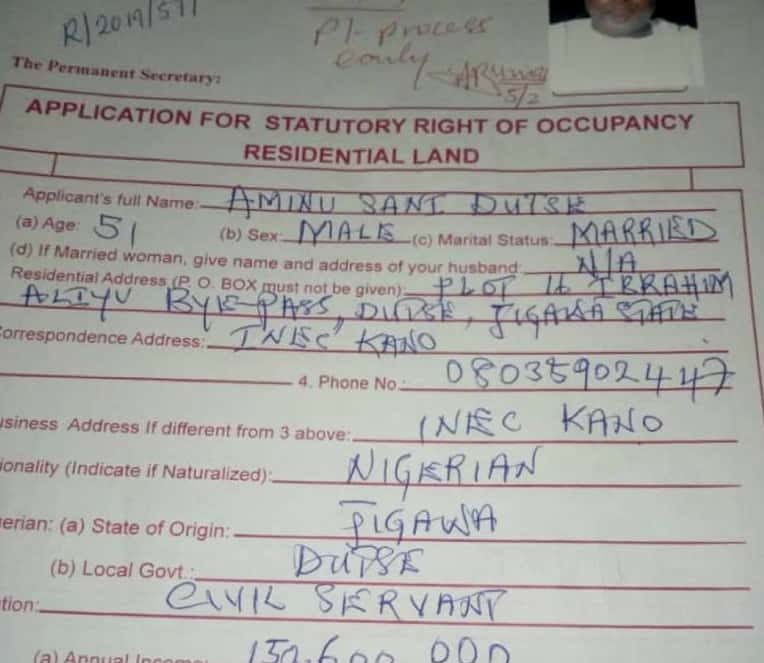 R/2019/571
Pl. process
early
5/2
The Permanent Secretary:
APPLICATION FOR STATUTORY RIGHT OF OCCUPANCY
RESIDENTIAL LAND
Applicant's full Name: AMINU SANI DUTSE
(a) Age: 51 (b) Sex: MALE (c) Marital Status: MARRIED
(d) If Married woman, give name and address of your husband: N/A
Residential Address (P. O. BOX must not be given): PLOT 16 IBRAHIM
ALIYU BYE-PASS, DUTSE, JIGAWA STATE
orrespondence Address: INEC KANO
4. Phone No.: 08035902447
usiness Address If different from 3 above: INEC KANO
ionality (Indicate if Naturalized): NIGERIAN
erian: (a) State of Origin: JIGAWA
(b) Local Govt.: DUTSE
tion: CIVIL SERVANT
(a) Annual Income: